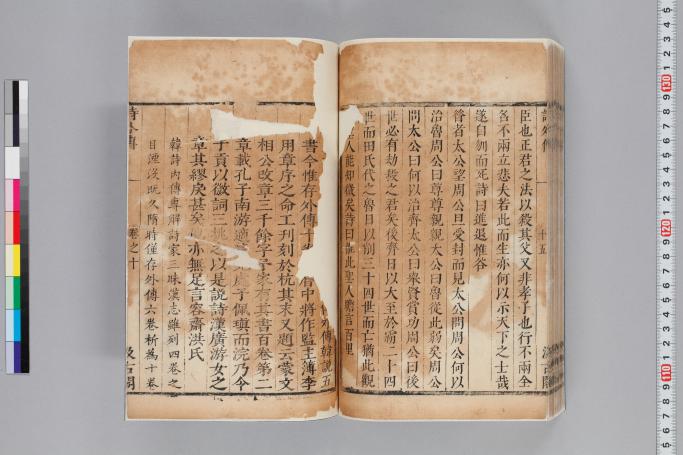 臣也正君之法以殺其父又非孝子也行不兩全
名不兩立悲夫若此而生亦何以示天下之士哉
遂自刎而死詩曰進退惟谷
昔者太公望周公旦受封而見太公問周公何以
治魯周公曰尊尊親親太公曰魯從此弱矣周公
問太公曰何以治齊太公曰舉賢賞功周公曰後
世必有劫殺之君矣後齊日以大至於霸二十四
世而田氏代之魯日以削三十四世而亡猶此觀
人能知微矣詩曰惟此聖人瞻言百里
詩外傳
十五
汲古閣
傳韓說五
書今惟存外傳十
中將作監主簿李
用章序之命工刊刻於杭其末又題云蒙文
相公改章三千餘字予家有其書百卷第二
章載孔子南游適
處子佩瑱而浣乃令
子貢以微詞三挑之以是說詩漢廣游女之
章其繆戾甚矣
亦無足言容齋洪氏
韓詩內傳專解詩家三昧漢志雖列四卷之
目湮沒既久隋時僅存外傳六卷析為十卷
詩外傳
卷之十
汲古閣
130
120
110